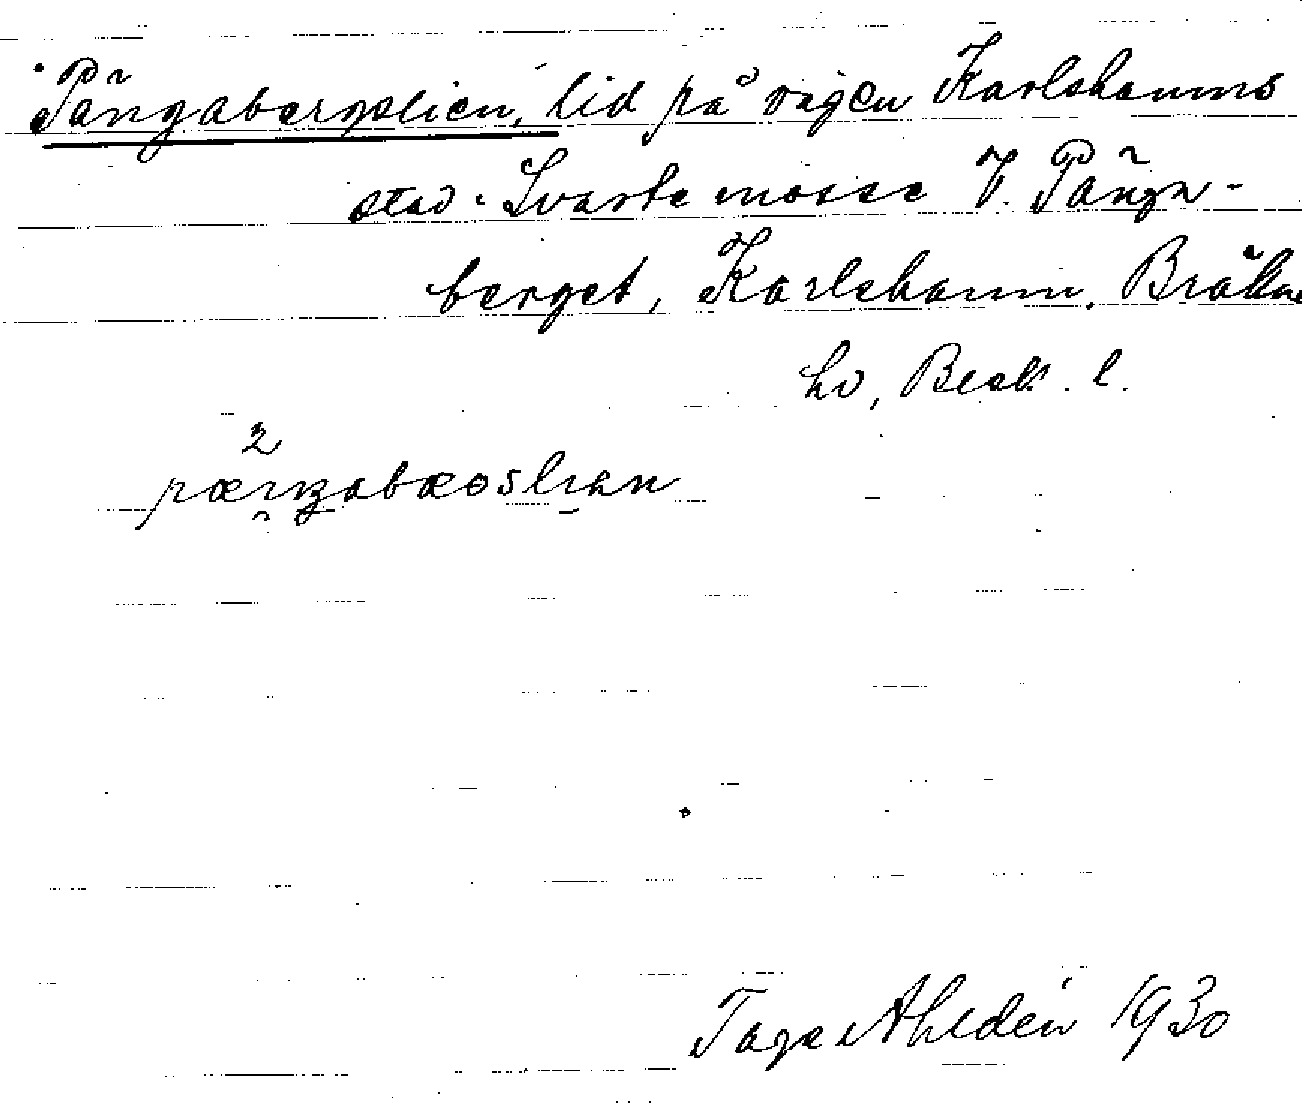 Pängabergslien, lid på vägen Karlshamns
stad - Svarte mosse V. Pänga-
berget, Karlshamn, Bräkne
hd, Blek. l.
2
pæŋabæɔslıan
Tage Ahldén 1930